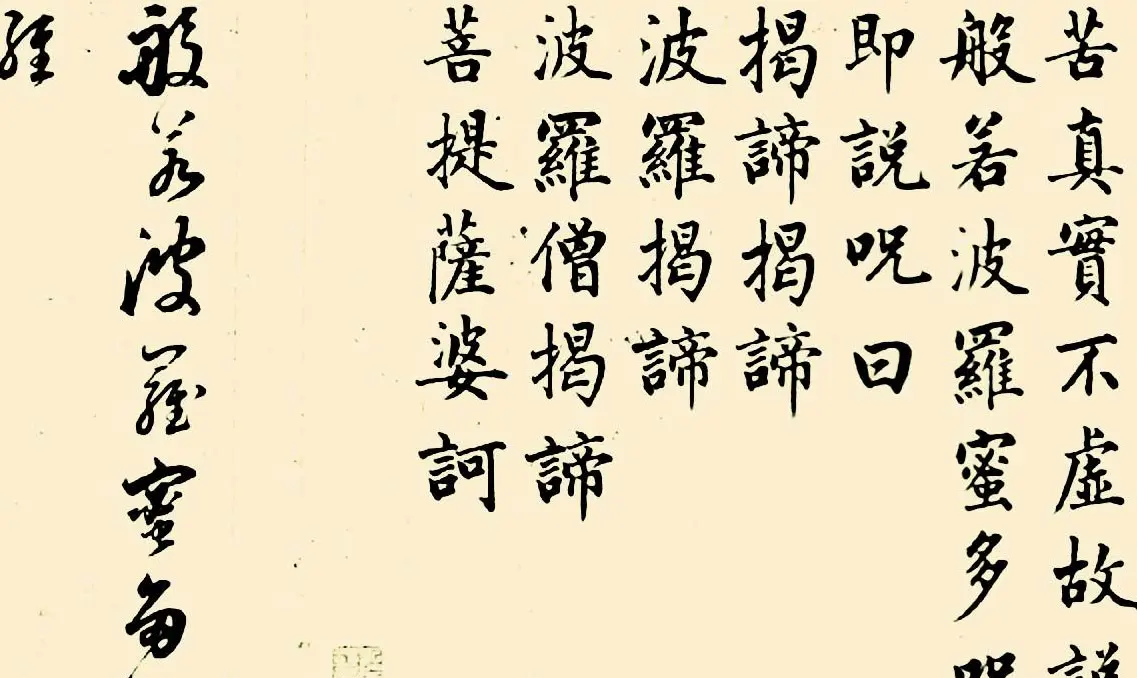 苦真實不虛故説
般若波羅蜜多呪
即説呪曰
揭諦揭諦
波羅揭諦
波羅僧揭諦
菩提薩婆訶
般若波羅蜜多
經